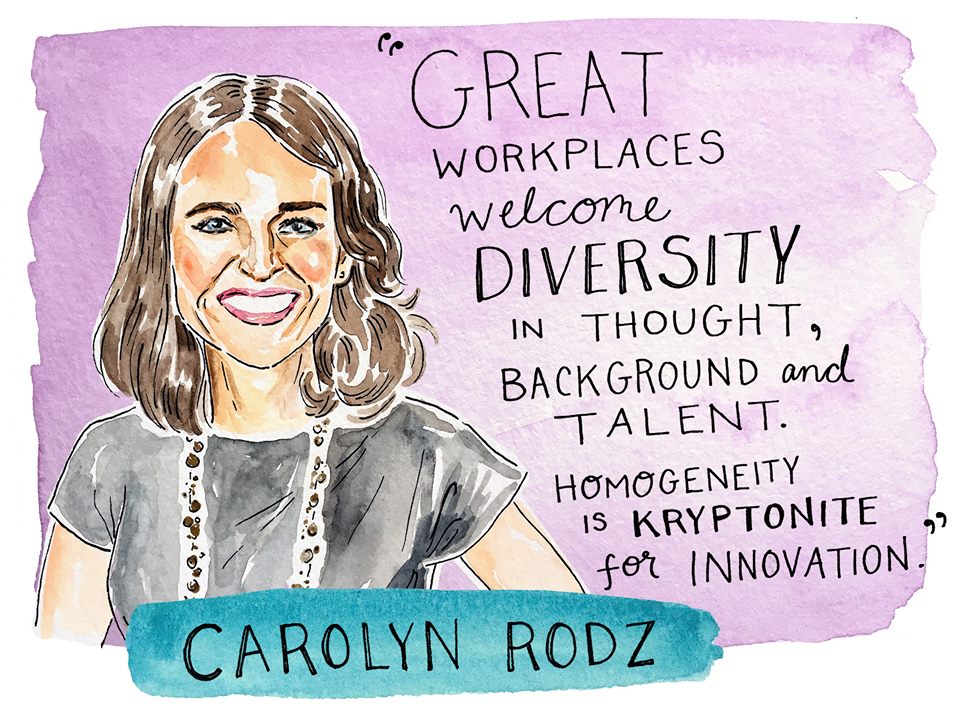 “GREAT
WORKPLACES
welcome
DIVERSITY
IN THOUGHT,
BACKGROUND and
TALENT.
HOMOGENEITY
IS KRYPTONITE
for INNOVATION.”
CAROLYN RODZ